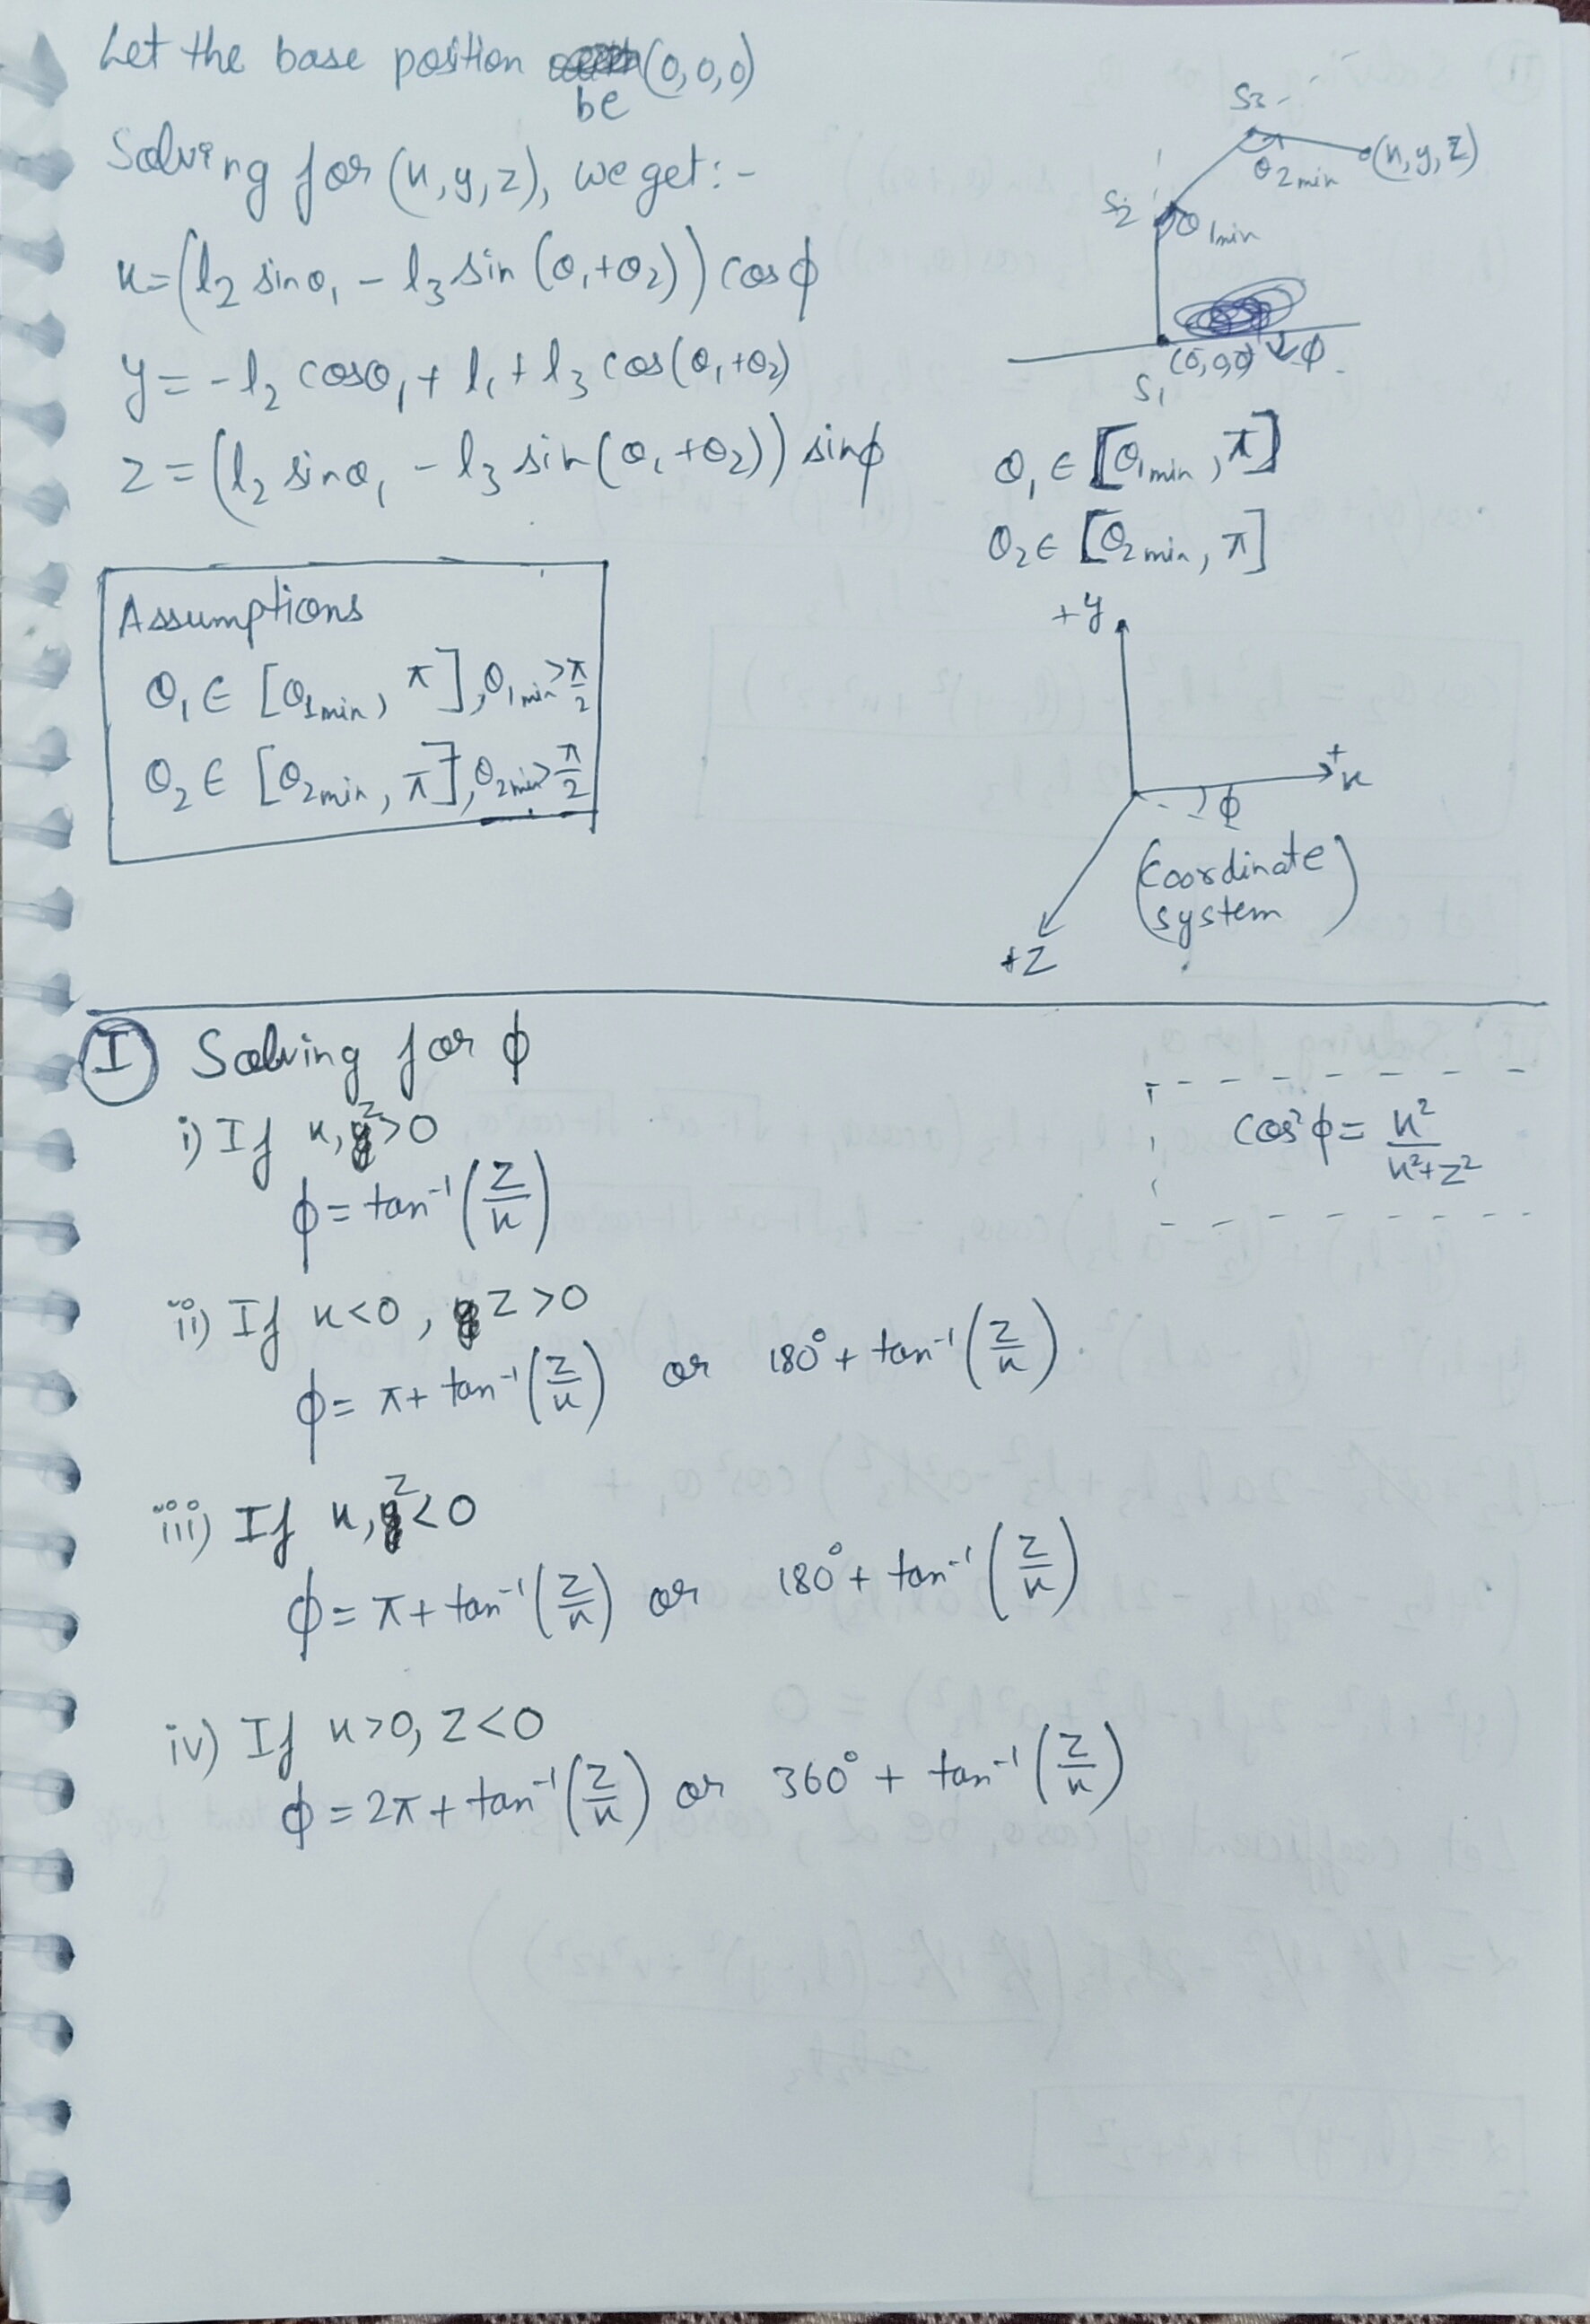 Let the base position (0,0,0)
be
Solving for (x,y,z), we get:-
x=(l₂ sinθ₁ - l₃ sin (θ₁+θ₂)) cos ϕ
y= -l₂ cosθ₁ + l₁ + l₃ cos(θ₁+θ₂)
z=(l₂ sinθ₁ - l₃ sin(θ₁+θ₂)) sinϕ
S₃
θ₂min
(x,y,z)
S₂
θ₁min
(0,0,0)
ϕ
S₁
θ₁ ∈ [θ₁min, π]
θ₂ ∈ [θ₂min, π]
Assumptions
θ₁ ∈ [θ₁min, π], θ₁min>π/2
θ₂ ∈ [θ₂min, π], θ₂min>π/2
+y
+x
ϕ
(Coordinate
system)
+z
I Solving for ϕ
i) If x,z>0
ϕ= tan⁻¹(z/x)
cos²ϕ= x²/(x²+z²)
ii) If x<0, z>0
ϕ= π+ tan⁻¹(z/x) or 180°+ tan⁻¹(z/x)
iii) If x,z<0
ϕ= π+ tan⁻¹(z/x) or 180°+ tan⁻¹(z/x)
iv) If x>0, z<0
ϕ=2π+ tan⁻¹(z/x) or 360° + tan⁻¹(z/x)